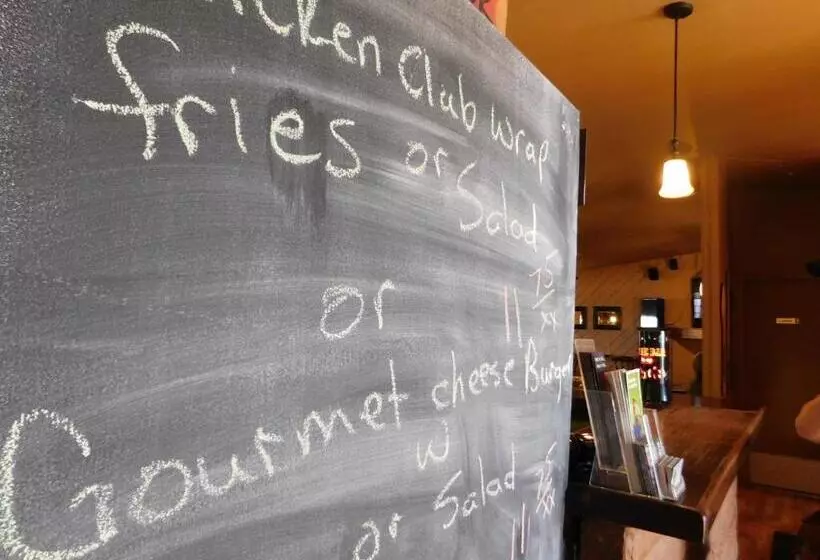 icken Club wrap
fries or Salad
11 75/xx
or
Gourmet cheese Burger
w
or Salad
11 75/xx